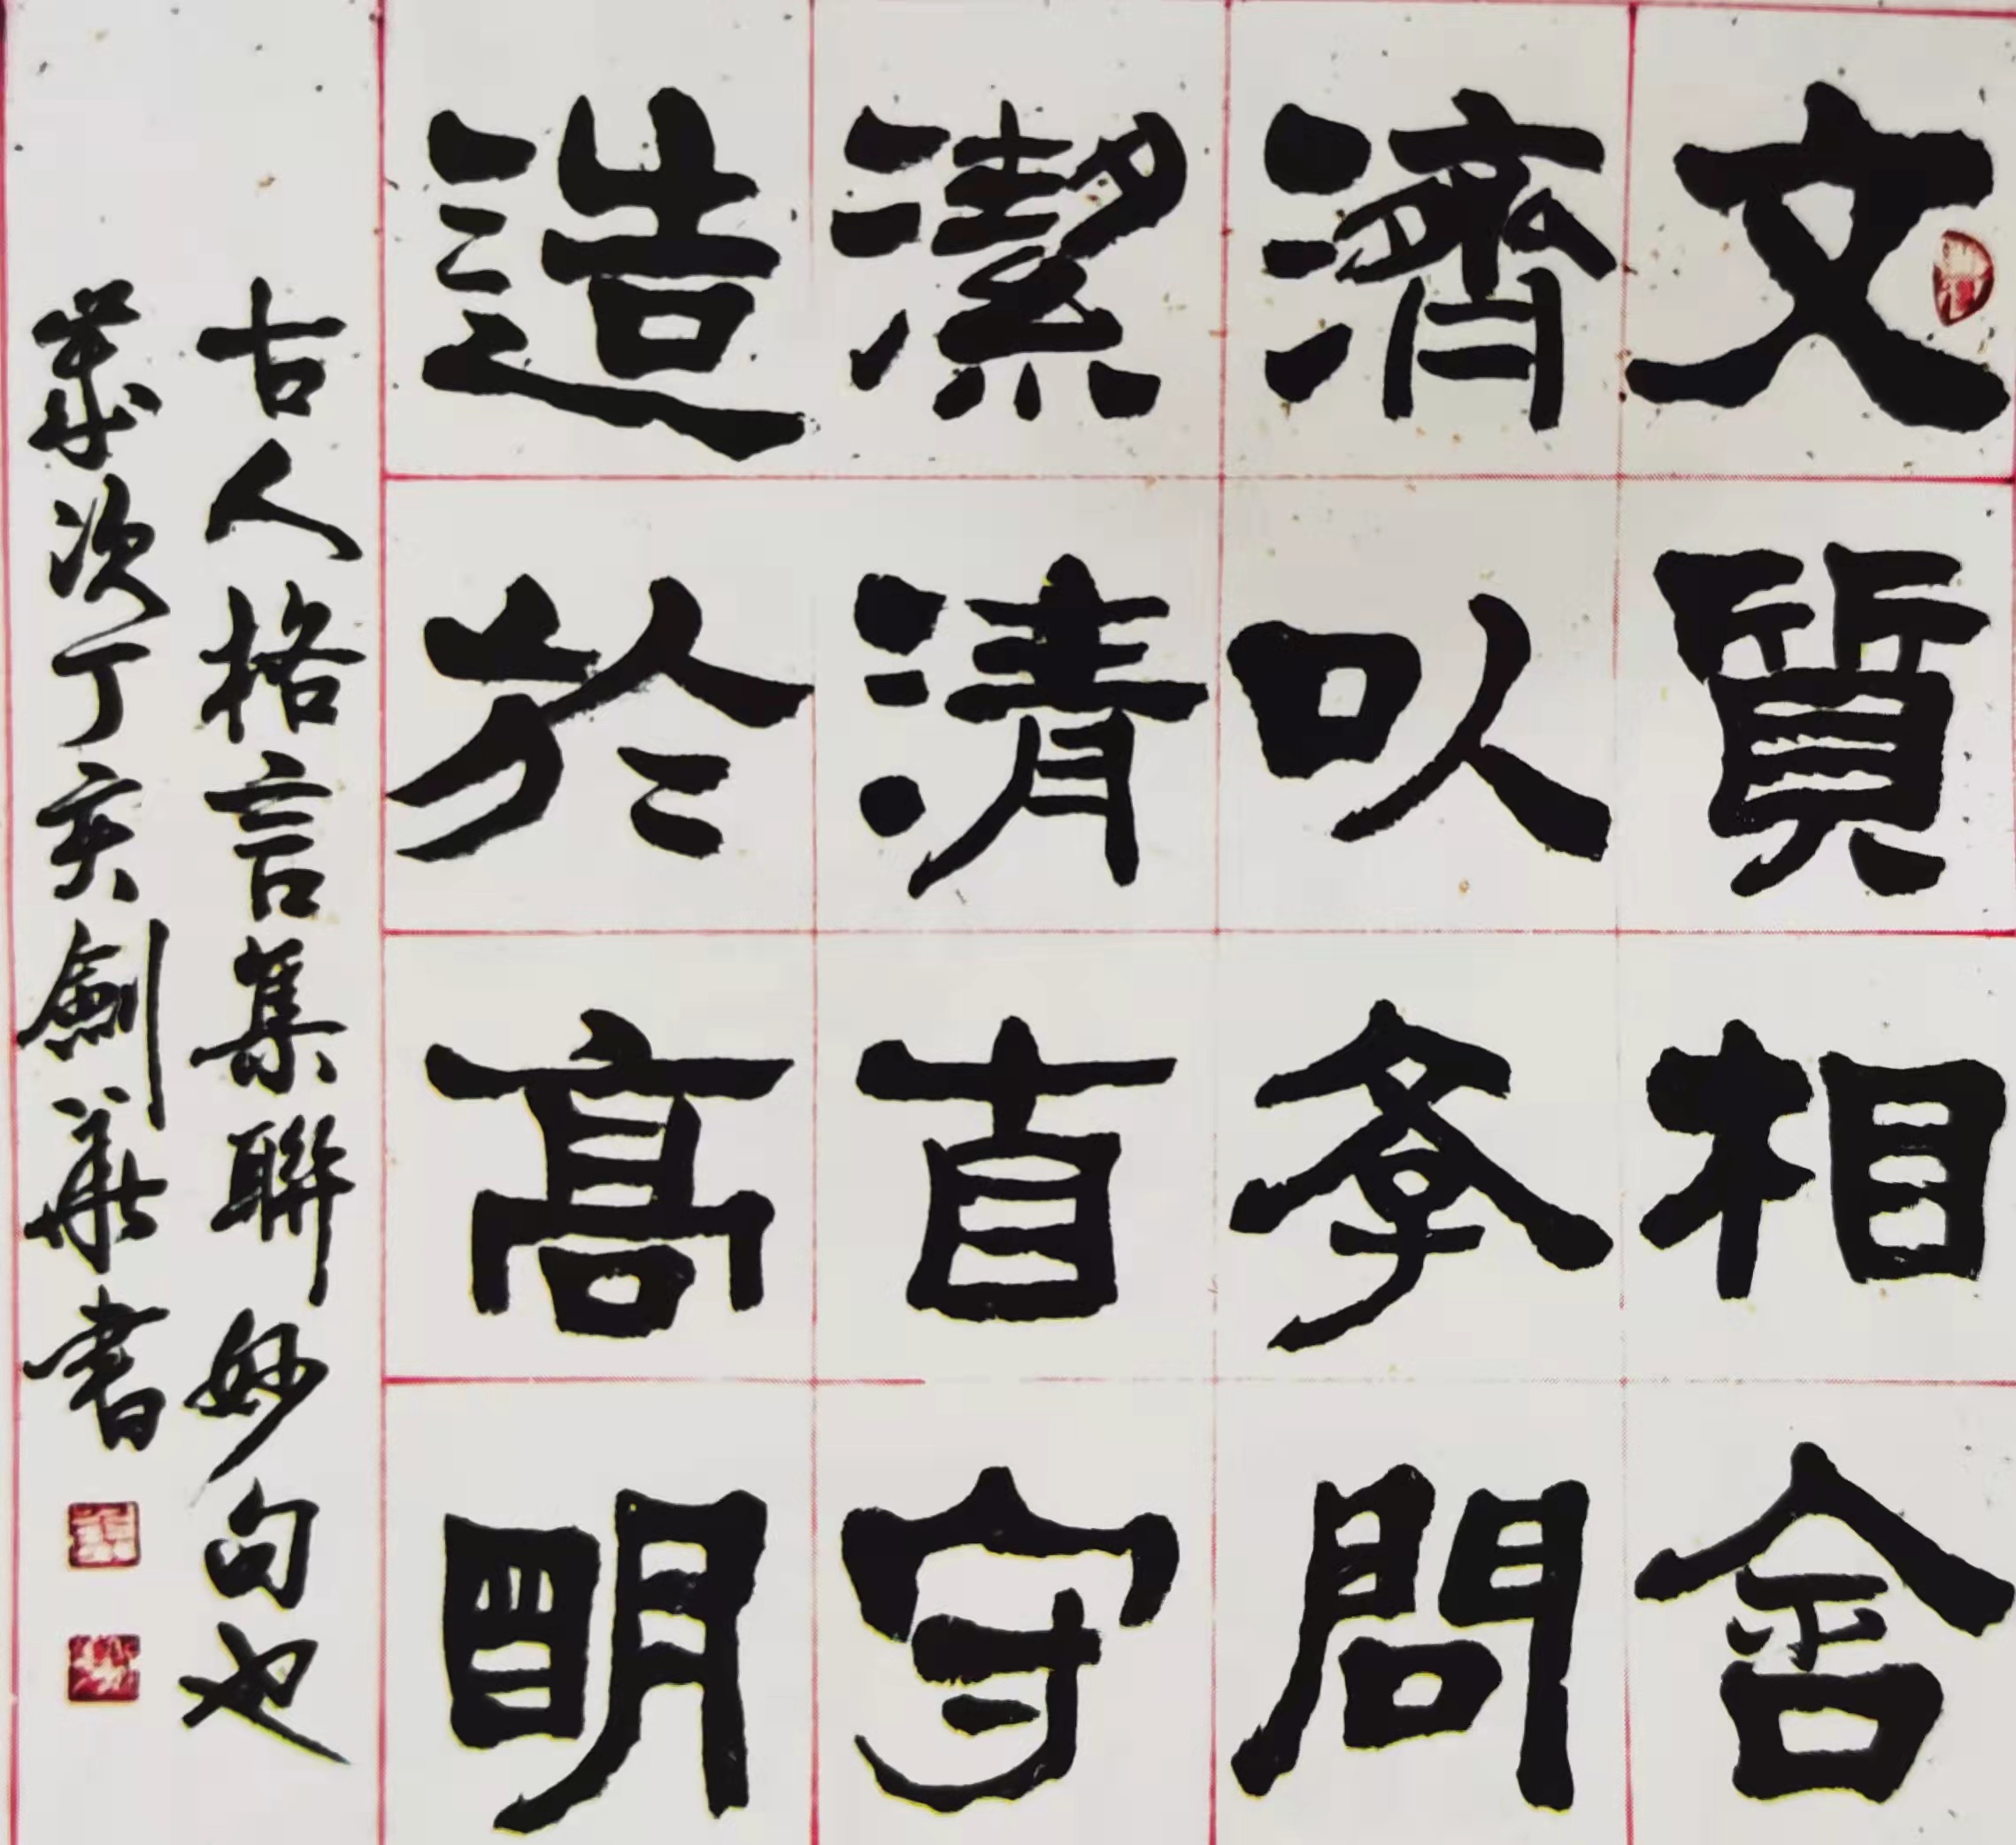 文質相含
濟以學問
潔清直守
造於高明
古人格言集聯妙句也
歲次丁亥劍華書